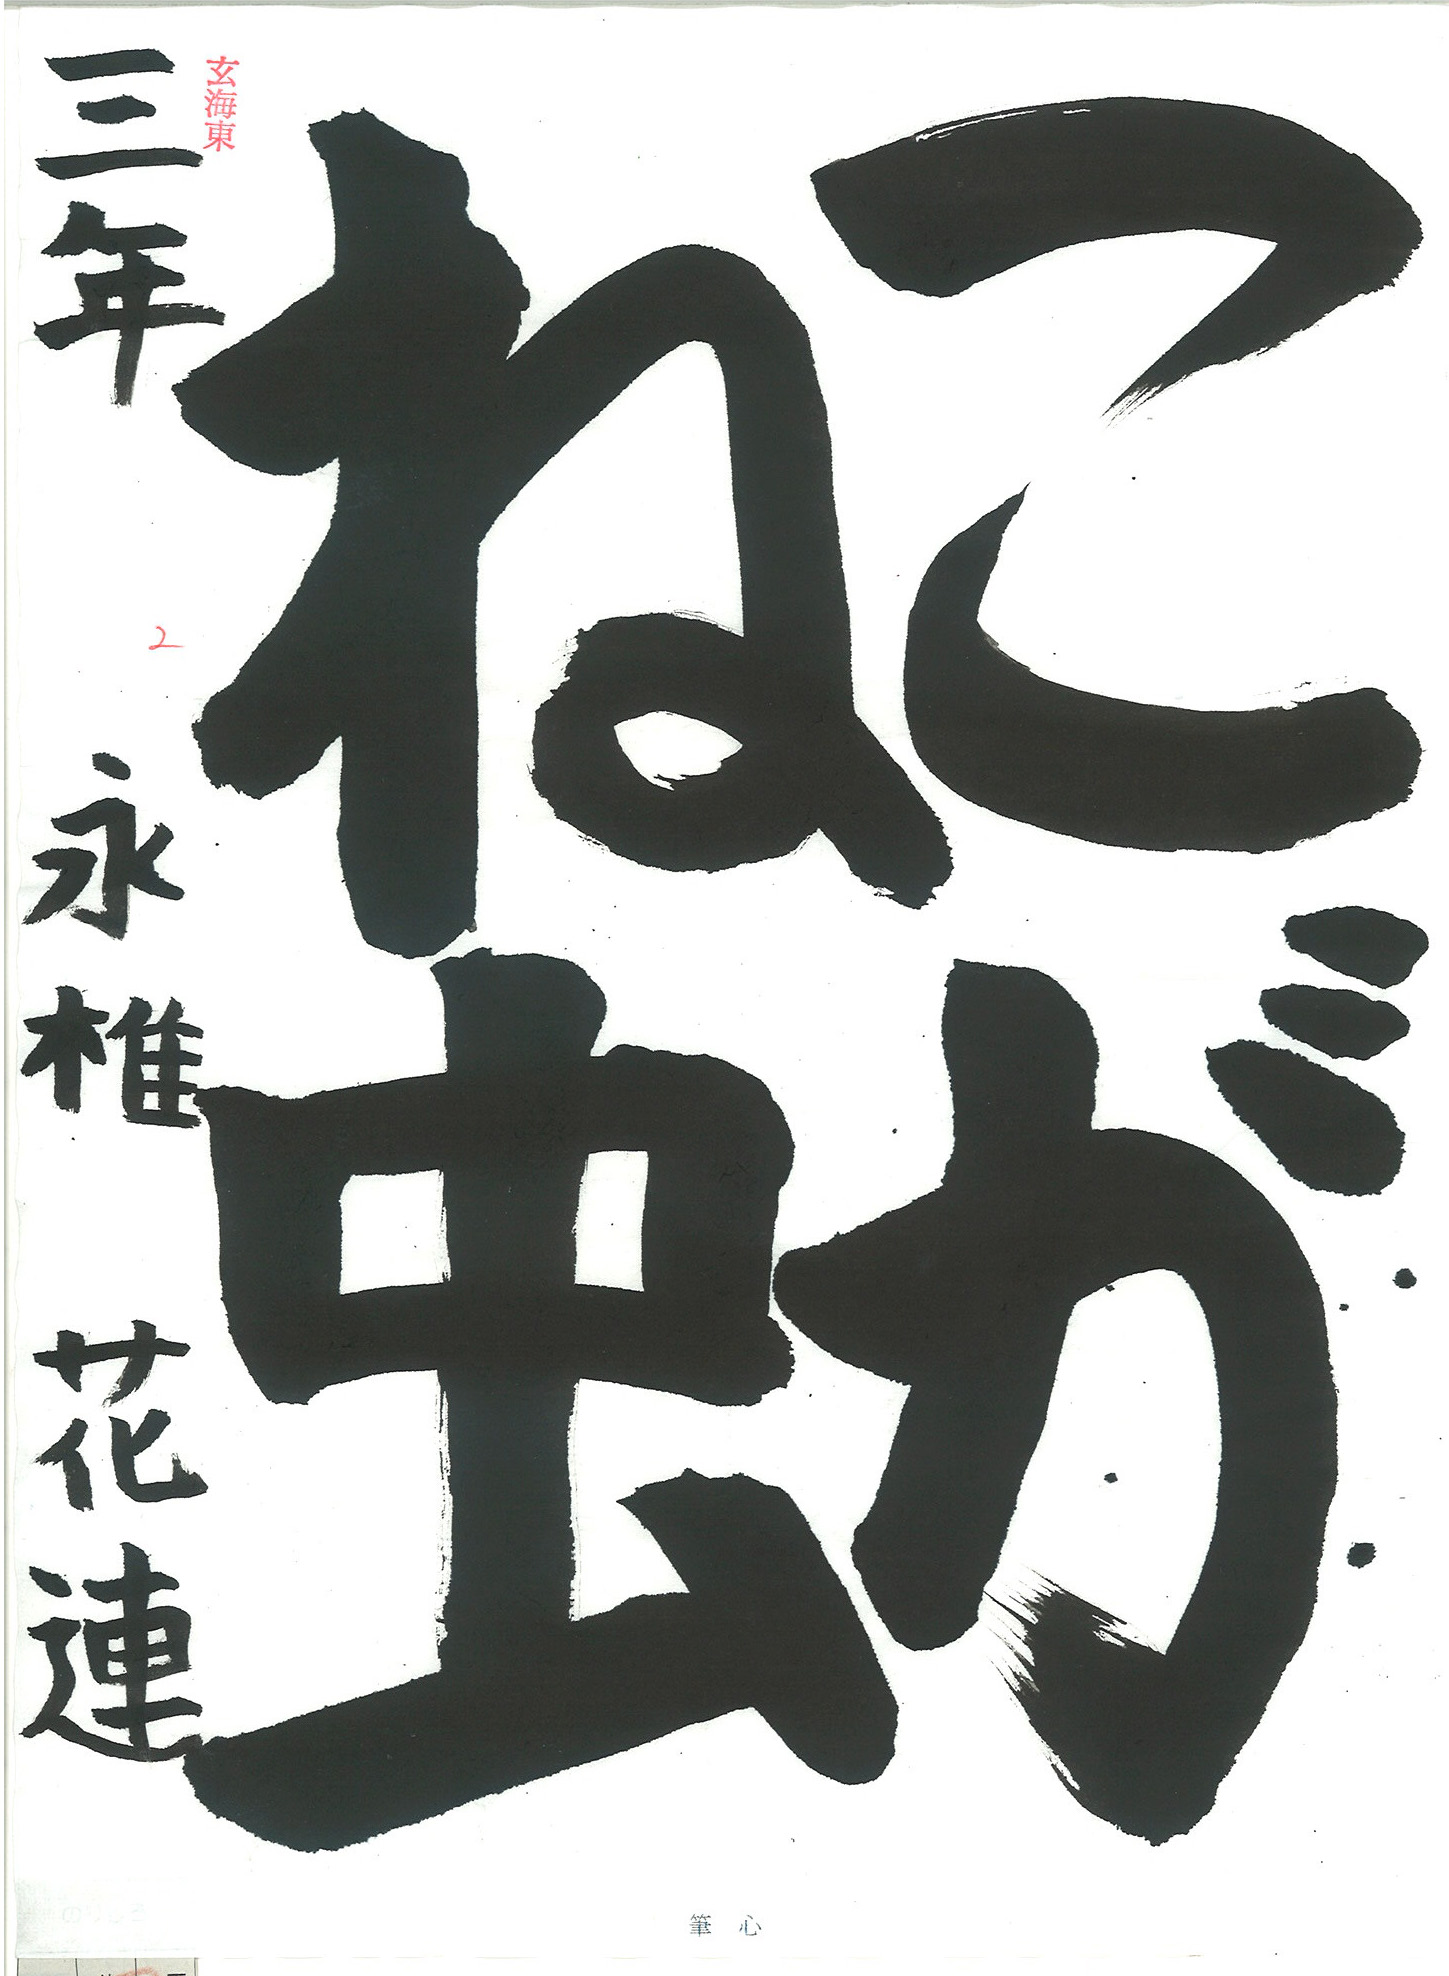 こが
ね虫
玄海東
三年 永椎 花連
2
筆心